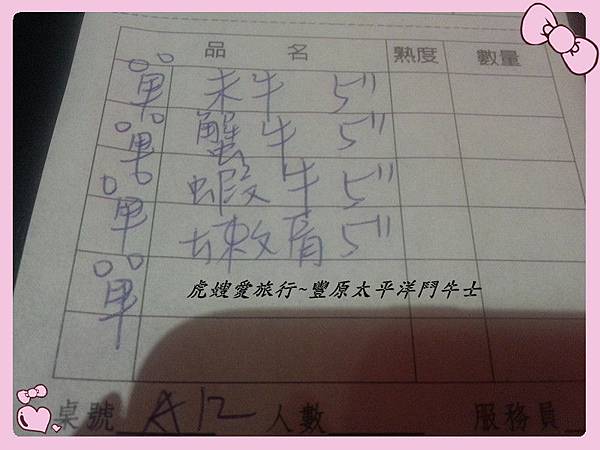 品名 熟度 數量
男 未牛 5"
單 蟹牛 5"
單 蝦牛 5"
單 嫩肩 5"
單
虎嫂愛旅行~豐原太平洋鬥牛士
桌號 A12 人數 服務員